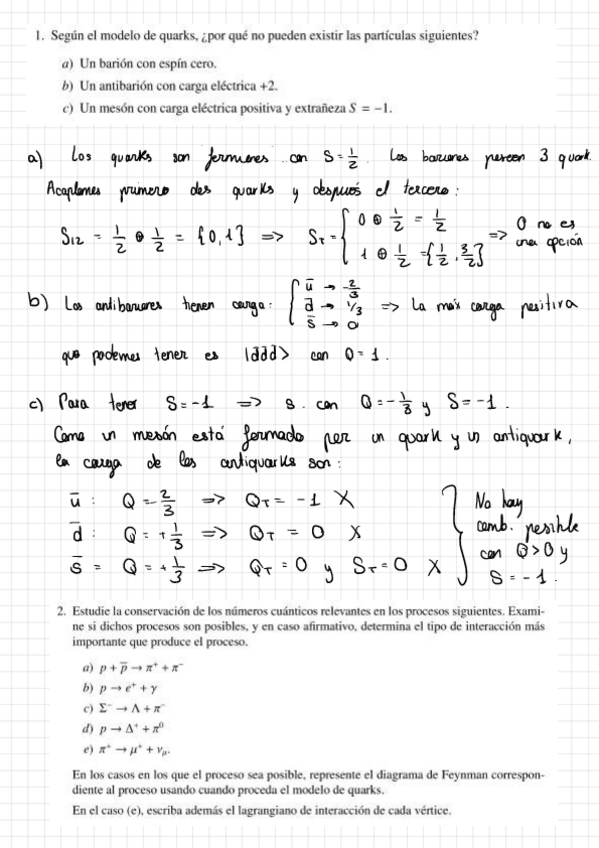 1. Según el modelo de quarks, ¿por qué no pueden existir las partículas siguientes?
a) Un barión con espín cero.
b) Un antibarión con carga eléctrica +2.
c) Un mesón con carga eléctrica positiva y extrañeza S = −1.
a) Los quarks son fermiones con S = 1/2. Los bariones poseen 3 quark.
Acoplamos primero dos quarks y después el tercero:
S₁₂ = 1/2 ⊕ 1/2 = {0,1} => S_T = { 0 ⊕ 1/2 = 1/2
1 ⊕ 1/2 = {1/2, 3/2} => 0 no es una opción
b) Los antibariones tienen carga: { ū → -2/3
d̄ → 1/3 => La más carga positiva
s̄ → 0
que podemos tener es |d̄d̄d̄> con Q = 1.
c) Para tener S = -1 => s. con Q = -1/3 y S = -1.
Como un mesón está formado por un quark y un antiquark,
la carga de los antiquarks son:
ū : Q = -2/3 => Q_T = -1 X
d̄ : Q = +1/3 => Q_T = 0 X
s̄ = Q = +1/3 => Q_T = 0 y S_T = 0 X
} No hay
comb. posible
con Q>0 y
S = -1.
2. Estudie la conservación de los números cuánticos relevantes en los procesos siguientes. Exami-
ne si dichos procesos son posibles, y en caso afirmativo, determina el tipo de interacción más
importante que produce el proceso.
a) p + p̄ → π⁺ + π⁻
b) p → e⁺ + γ
c) Σ⁻ → Λ + π⁻
d) p → Δ⁺ + π⁰
e) π⁺ → μ⁺ + ν_μ.
En los casos en los que el proceso sea posible, represente el diagrama de Feynman correspon-
diente al proceso usando cuando proceda el modelo de quarks.
En el caso (e), escriba además el lagrangiano de interacción de cada vértice.